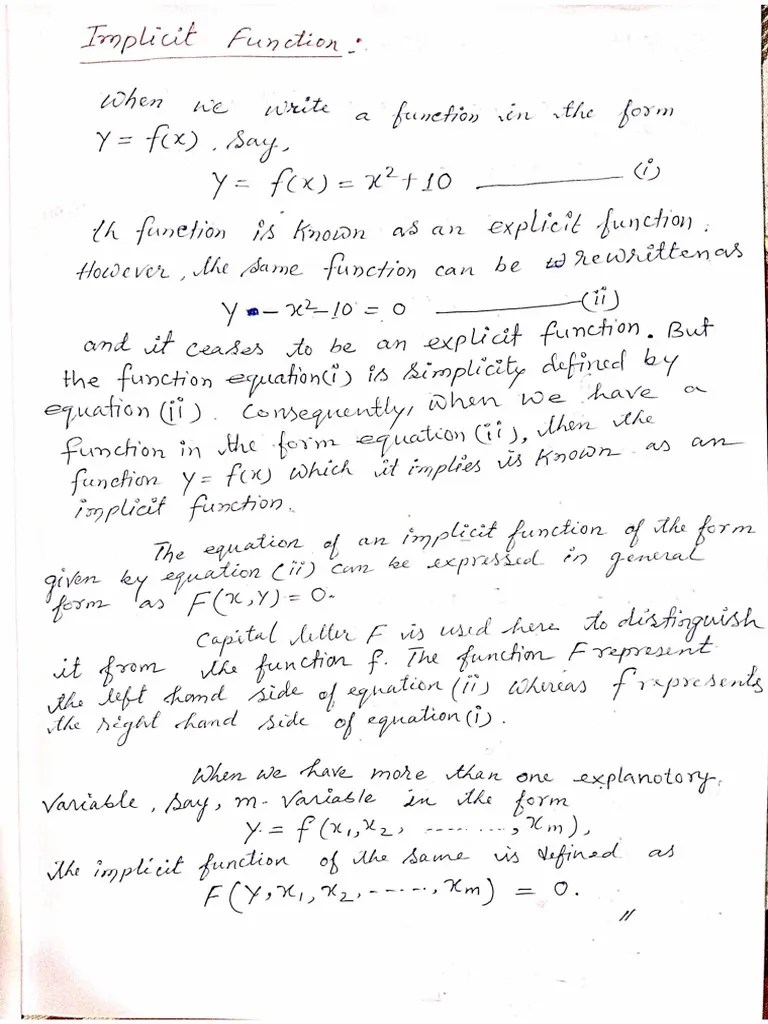 Implicit Function :
When we write a function in the form
Y = f(x). Say,
Y = f(x) = x² + 10 ______ (i)
th function is known as an explicit function.
However, the same function can be rewritten as
Y - x² - 10 = 0 ______ (ii)
and it ceases to be an explicit function. But
the function equation (i) is simplicity defined by
equation (ii). Consequently, when we have a
function in the form equation (ii), then the
function Y = f(x) which it implies is known as an
implicit function.
The equation of an implicit function of the form
given by equation (ii) can be expressed in general
form as F(x, Y) = 0.
Capital letter F is used here to distinguish
it from the function f. The function F represent
the left hand side of equation (ii) whereas f represents
the right hand side of equation (i).
When we have more than one explanotory
variable, say, m-variable in the form
Y = f(x₁, x₂, ........., xₘ),
the implicit function of the same is defined as
F(Y, x₁, x₂, ......, xₘ) = 0.